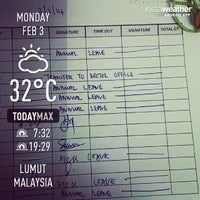 MONDAY
FEB 3
instaweather
ANDROID APP
3/2/14
SIGNATURE TIME OUT SIGNATURE TOTAL OT
ANNUAL LEAVE
TRANSFER TO OFFICE
ANNUAL LEAVE
32°C
ANNUAL LEAVE
TODAYMAX
7:32
19:29
LEAVE
LUMUT
MALAYSIA
LEAVE
ANNUAL LEAVE